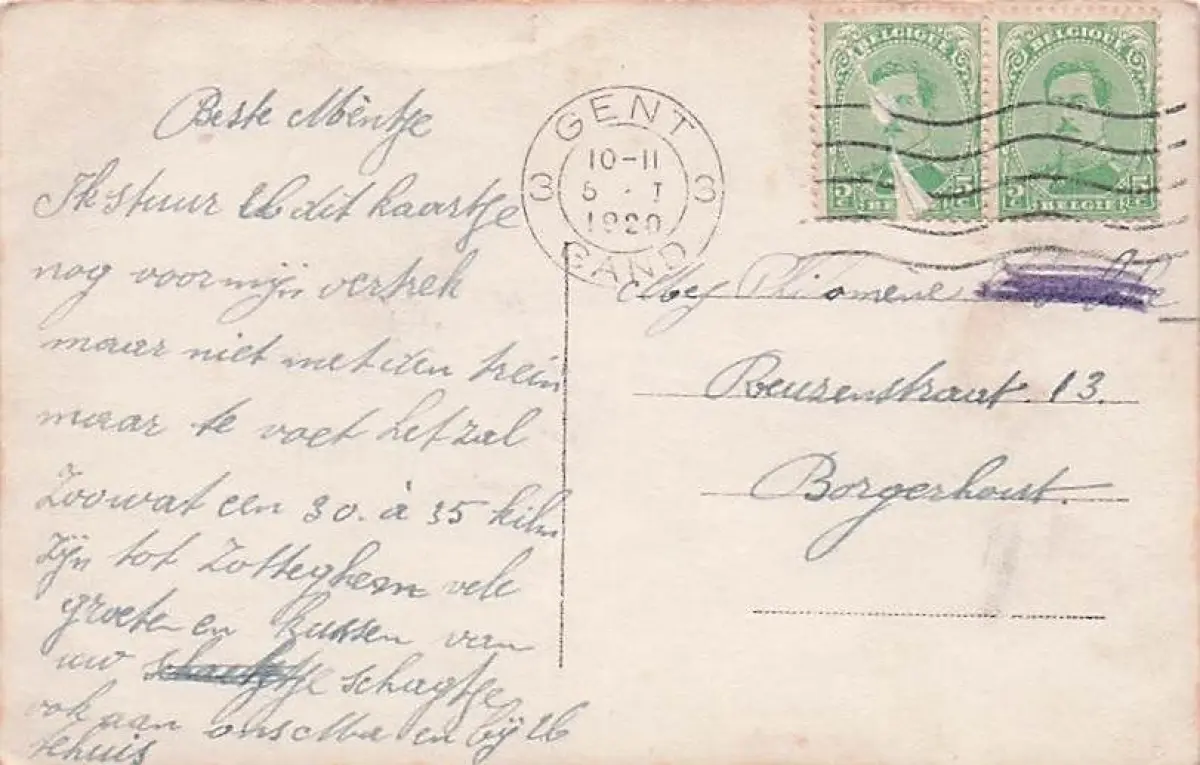 Beste Mèntje
Ik stuur U dit kaartje
nog voor mijn vertrek
maar niet met den trein
maar te voet het zal
Zoowat een 30. à 35 kilm
zijn tot Zotteghem vele
groeten en kussen van
uw schagtje
ook aan ons Ma en bij U
tehuis
GENT
3 10-11 3
1920
GAND
BELGIQUE
5c 5c
BELGIË
BELGIQUE
5c 5c
BELGIË
Mej Philomene
Reuzenstraat. 13.
Borgerhout.